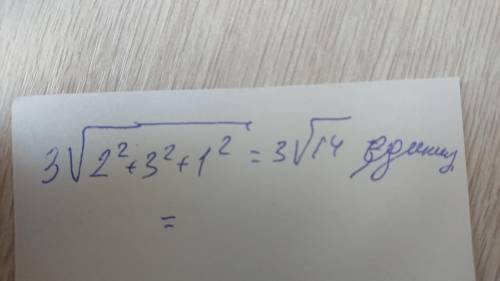 3√(2²+3²+1²) = 3√14 единиц
=